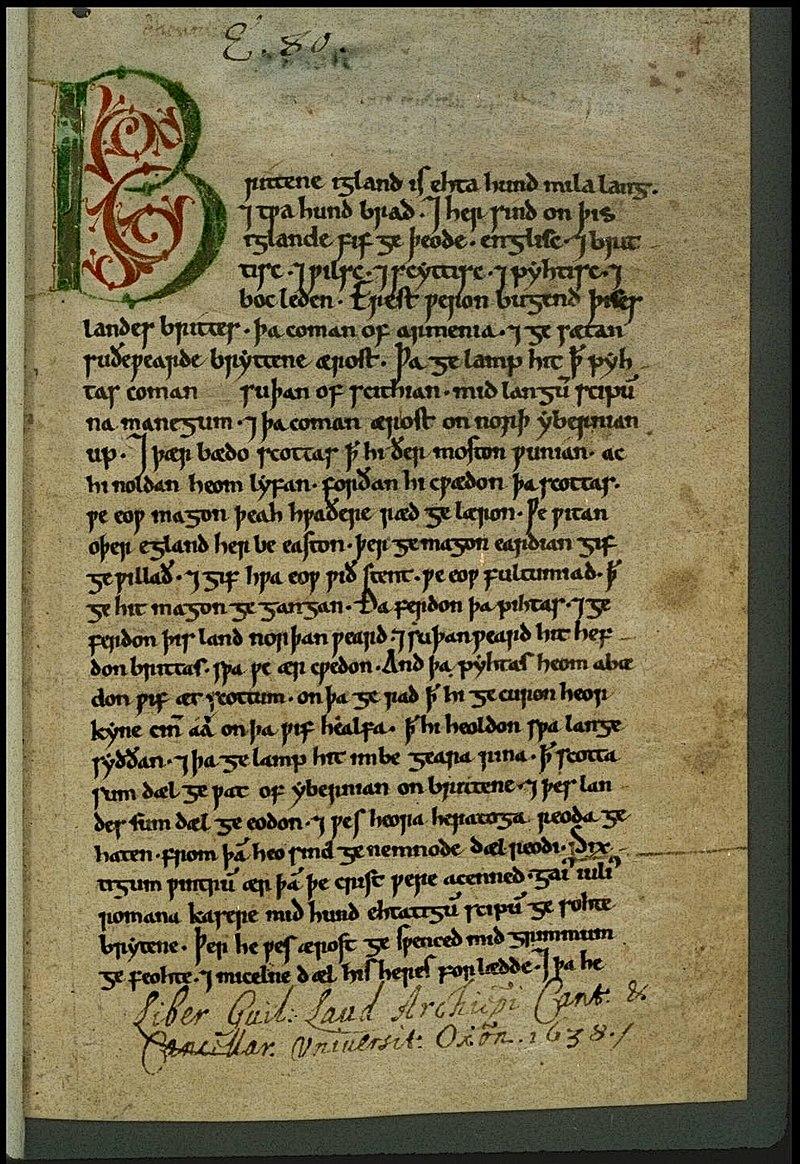 E. 80.
Brittene igland is ehta hund mila lang.
⁊ tƿa hund brad. ⁊ her sind on þis
iglande fif ge þeode. englisc. ⁊ brit
tisc. ⁊ ƿilsc. ⁊ scyttisc. ⁊ pyhtisc. ⁊
boc leden. Erest ƿeron bugend þises
landes brittes. þa coman of armenia. ⁊ ge sætan
suðeƿearde bryttene ærost. Þa ge lamp hit þ̅ pyh
tas coman suþan of scithian. mid langū scipū
na manegum. ⁊ þa coman ærost on norþ ybernian
up. ⁊ þær bædo scottas þ̅ hi ðer moston ƿunian. ac
hi noldan heom lyfan. forðan hi cƿædon þa scottas.
ƿe eoƿ magon þeah hƿaðere ræd ge læron. Ƿe ƿitan
oþer egland her be easton. þer ge magon eardian gif
ge ƿillað. ⁊ gif hƿa eoƿ ƿið stent. ƿe eoƿ fultumiað. þ̅
ge hit magon ge gangan. Ða ferdon þa pihtas. ⁊ ge
ferdon þis land norþan ƿeard. ⁊ suþan ƿeard hit hef
don brittas. sƿa ƿe ær cƿedon. And þa pyhtas heom abæ
don ƿif æt scottum. on þa ge rad þ̅ hi ge curon heor
kyne cīn aā on þa ƿif healfa. þ̅ hi heoldon sƿa lange
syððan. ⁊ þa ge lamp hit imbe geara rina. þ̅ scotta
sum dæl ge ƿat of ybernian on brittene. ⁊ þes lan
des sum dæl ge eodon. ⁊ ƿes heora heratoga reoda ge
haten. from þā heo sind ge nemnode dæl reodi. Six
tigum ƿintrū ær þā þe crist ƿere acenned. gaiꝰ iuliꝰ
romana kasere mid hund ehtatigū scipū ge sohte
brytene. Þer he ƿes ærost ge sƿenced mid grimmum
ge feohte. ⁊ micelne dæl his heres forlædde. ⁊ þa he
Liber Guil: Laud Archiep̄i Cant: &
Cancellar. Universit: Oxōn. 1638./